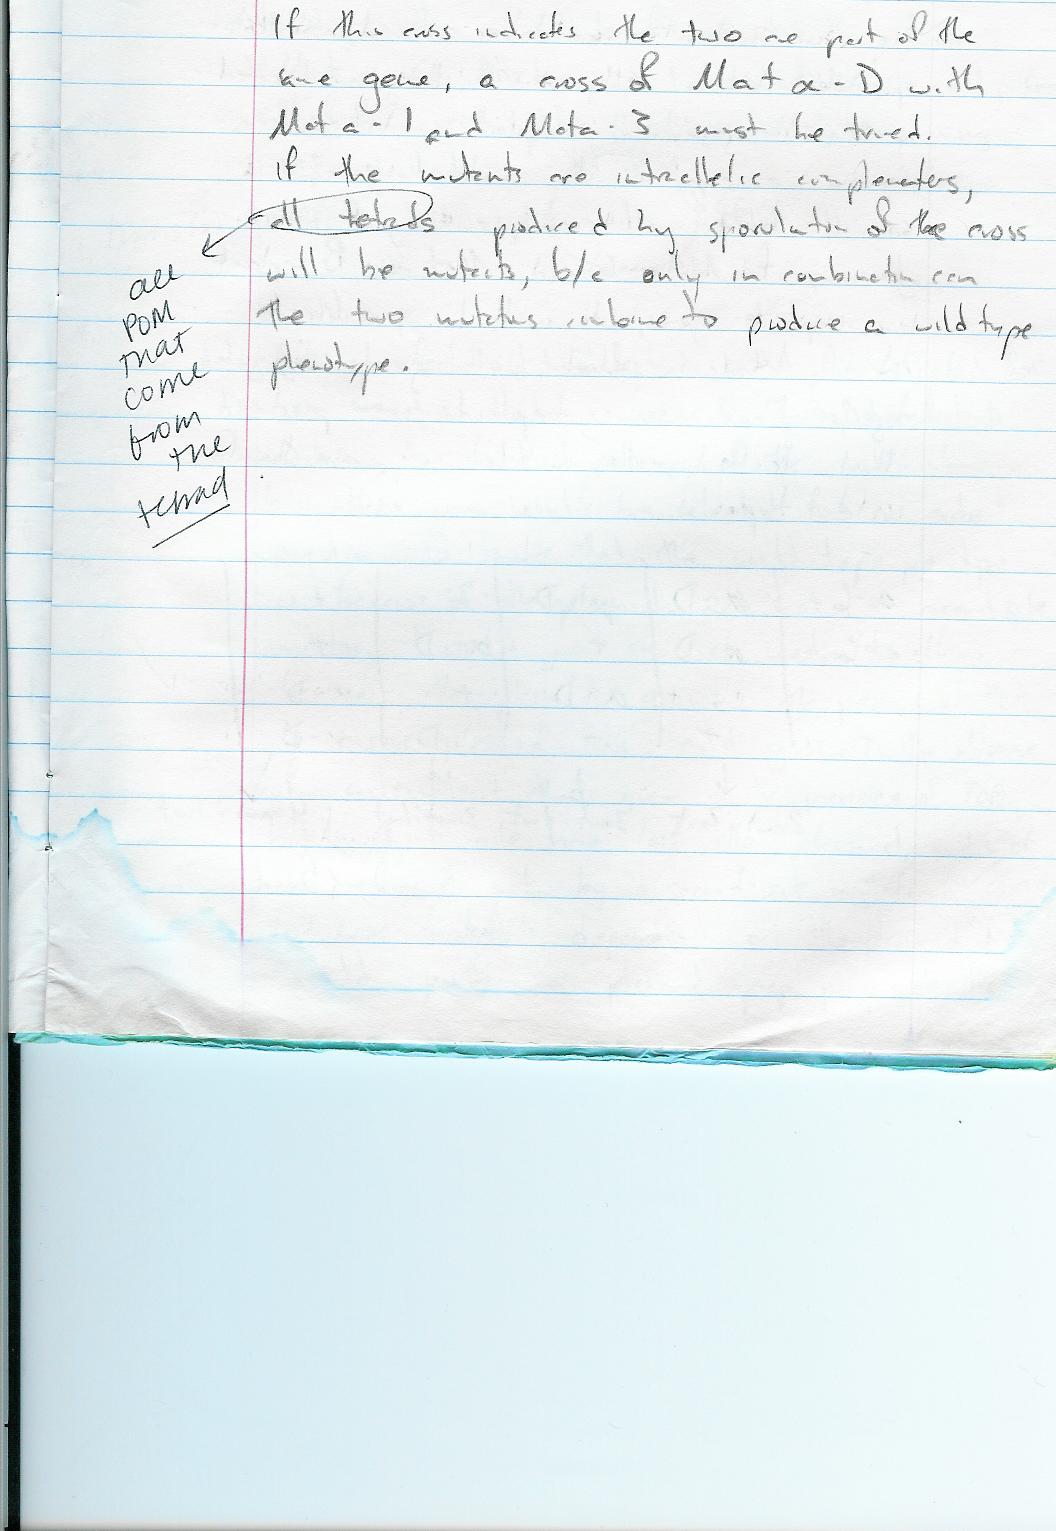 If this cross indicates the two are part of the
same gene, a cross of Mat α-D with
Mat a-1 and Mat a-3 must be tried.
If the mutants are intraellelic complementers,
all tetrads produced by sporulation of the cross
will be mutants, b/c only in combination can
the two mutations combine to produce a wild type
phenotype.
all
POM
that
come
from
the
tetrad